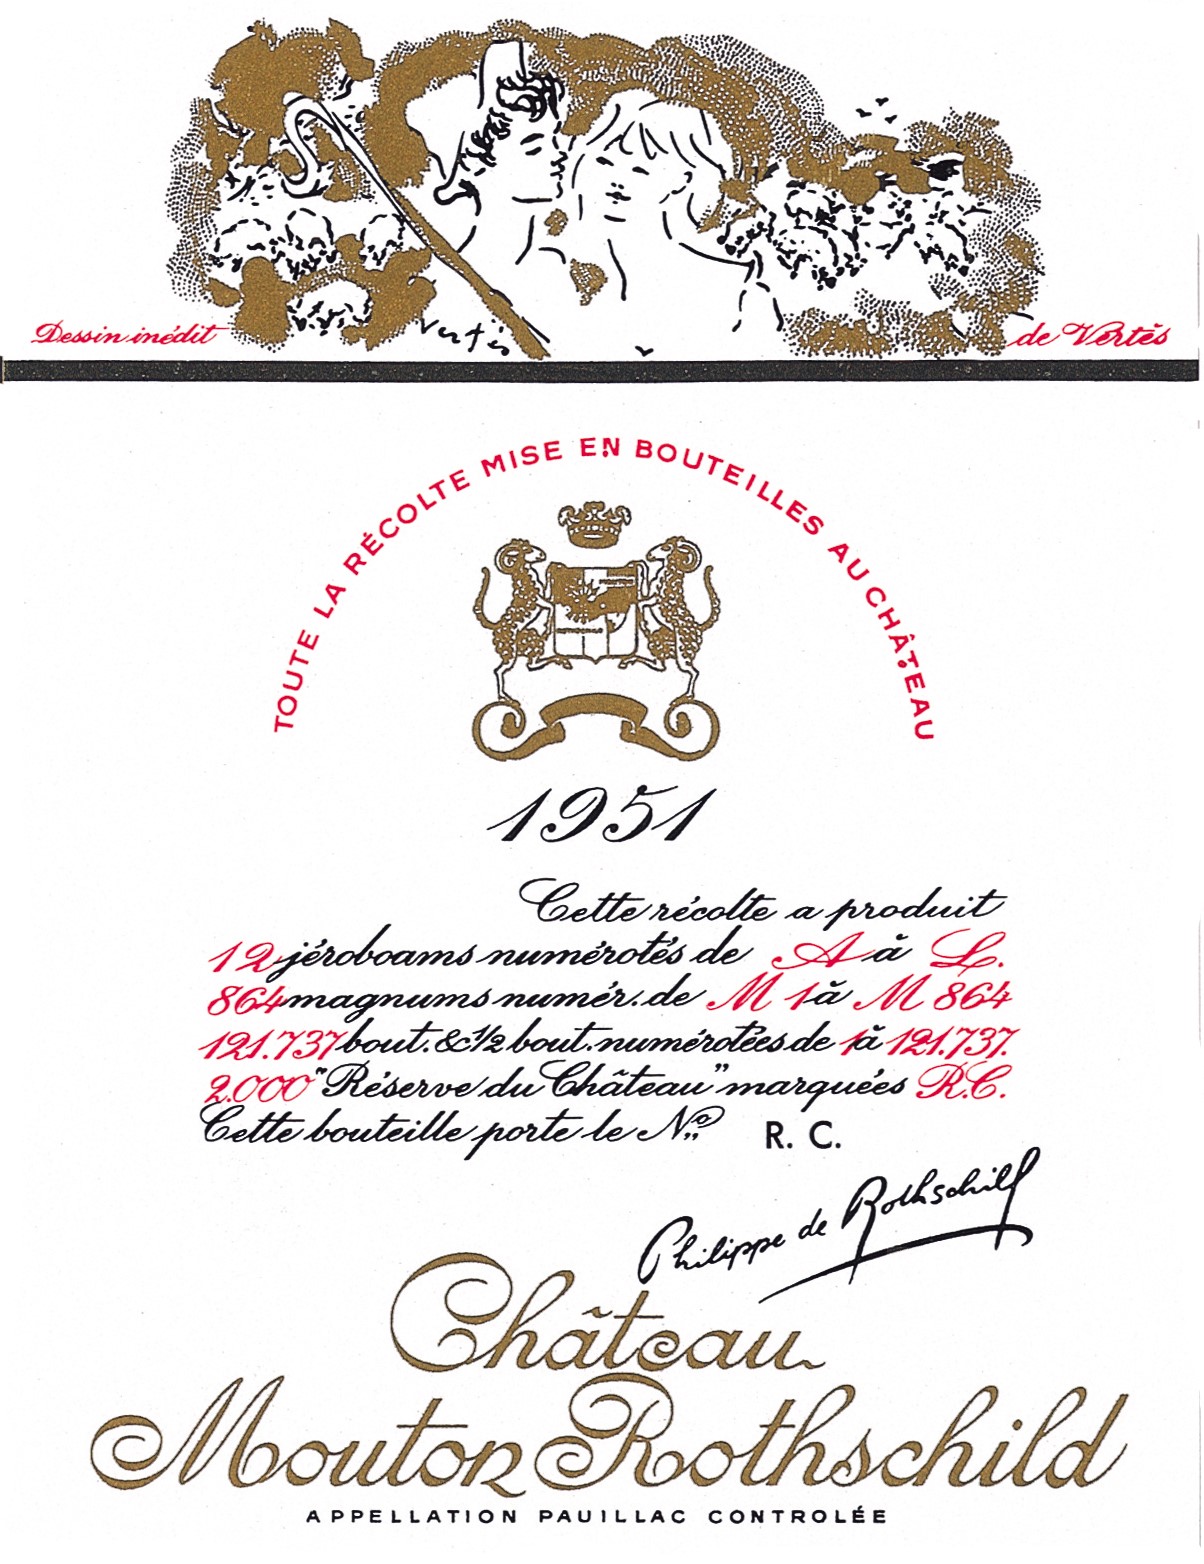 Vertès
Dessin inédit
de Vertès
TOUTE LA RÉCOLTE MISE EN BOUTEILLES AU CHÂTEAU
1951
Cette récolte a produit
12 jéroboams numérotés de A à L.
864 magnums numér. de M 1 à M 864
121.737 bout. & 1/2 bout. numérotées de 1 à 121.737.
2.000 "Réserve du Château" marquées R.C.
Cette bouteille porte le No. R. C.
Philippe de Rothschild
Château
Mouton Rothschild
APPELLATION PAUILLAC CONTROLÉE